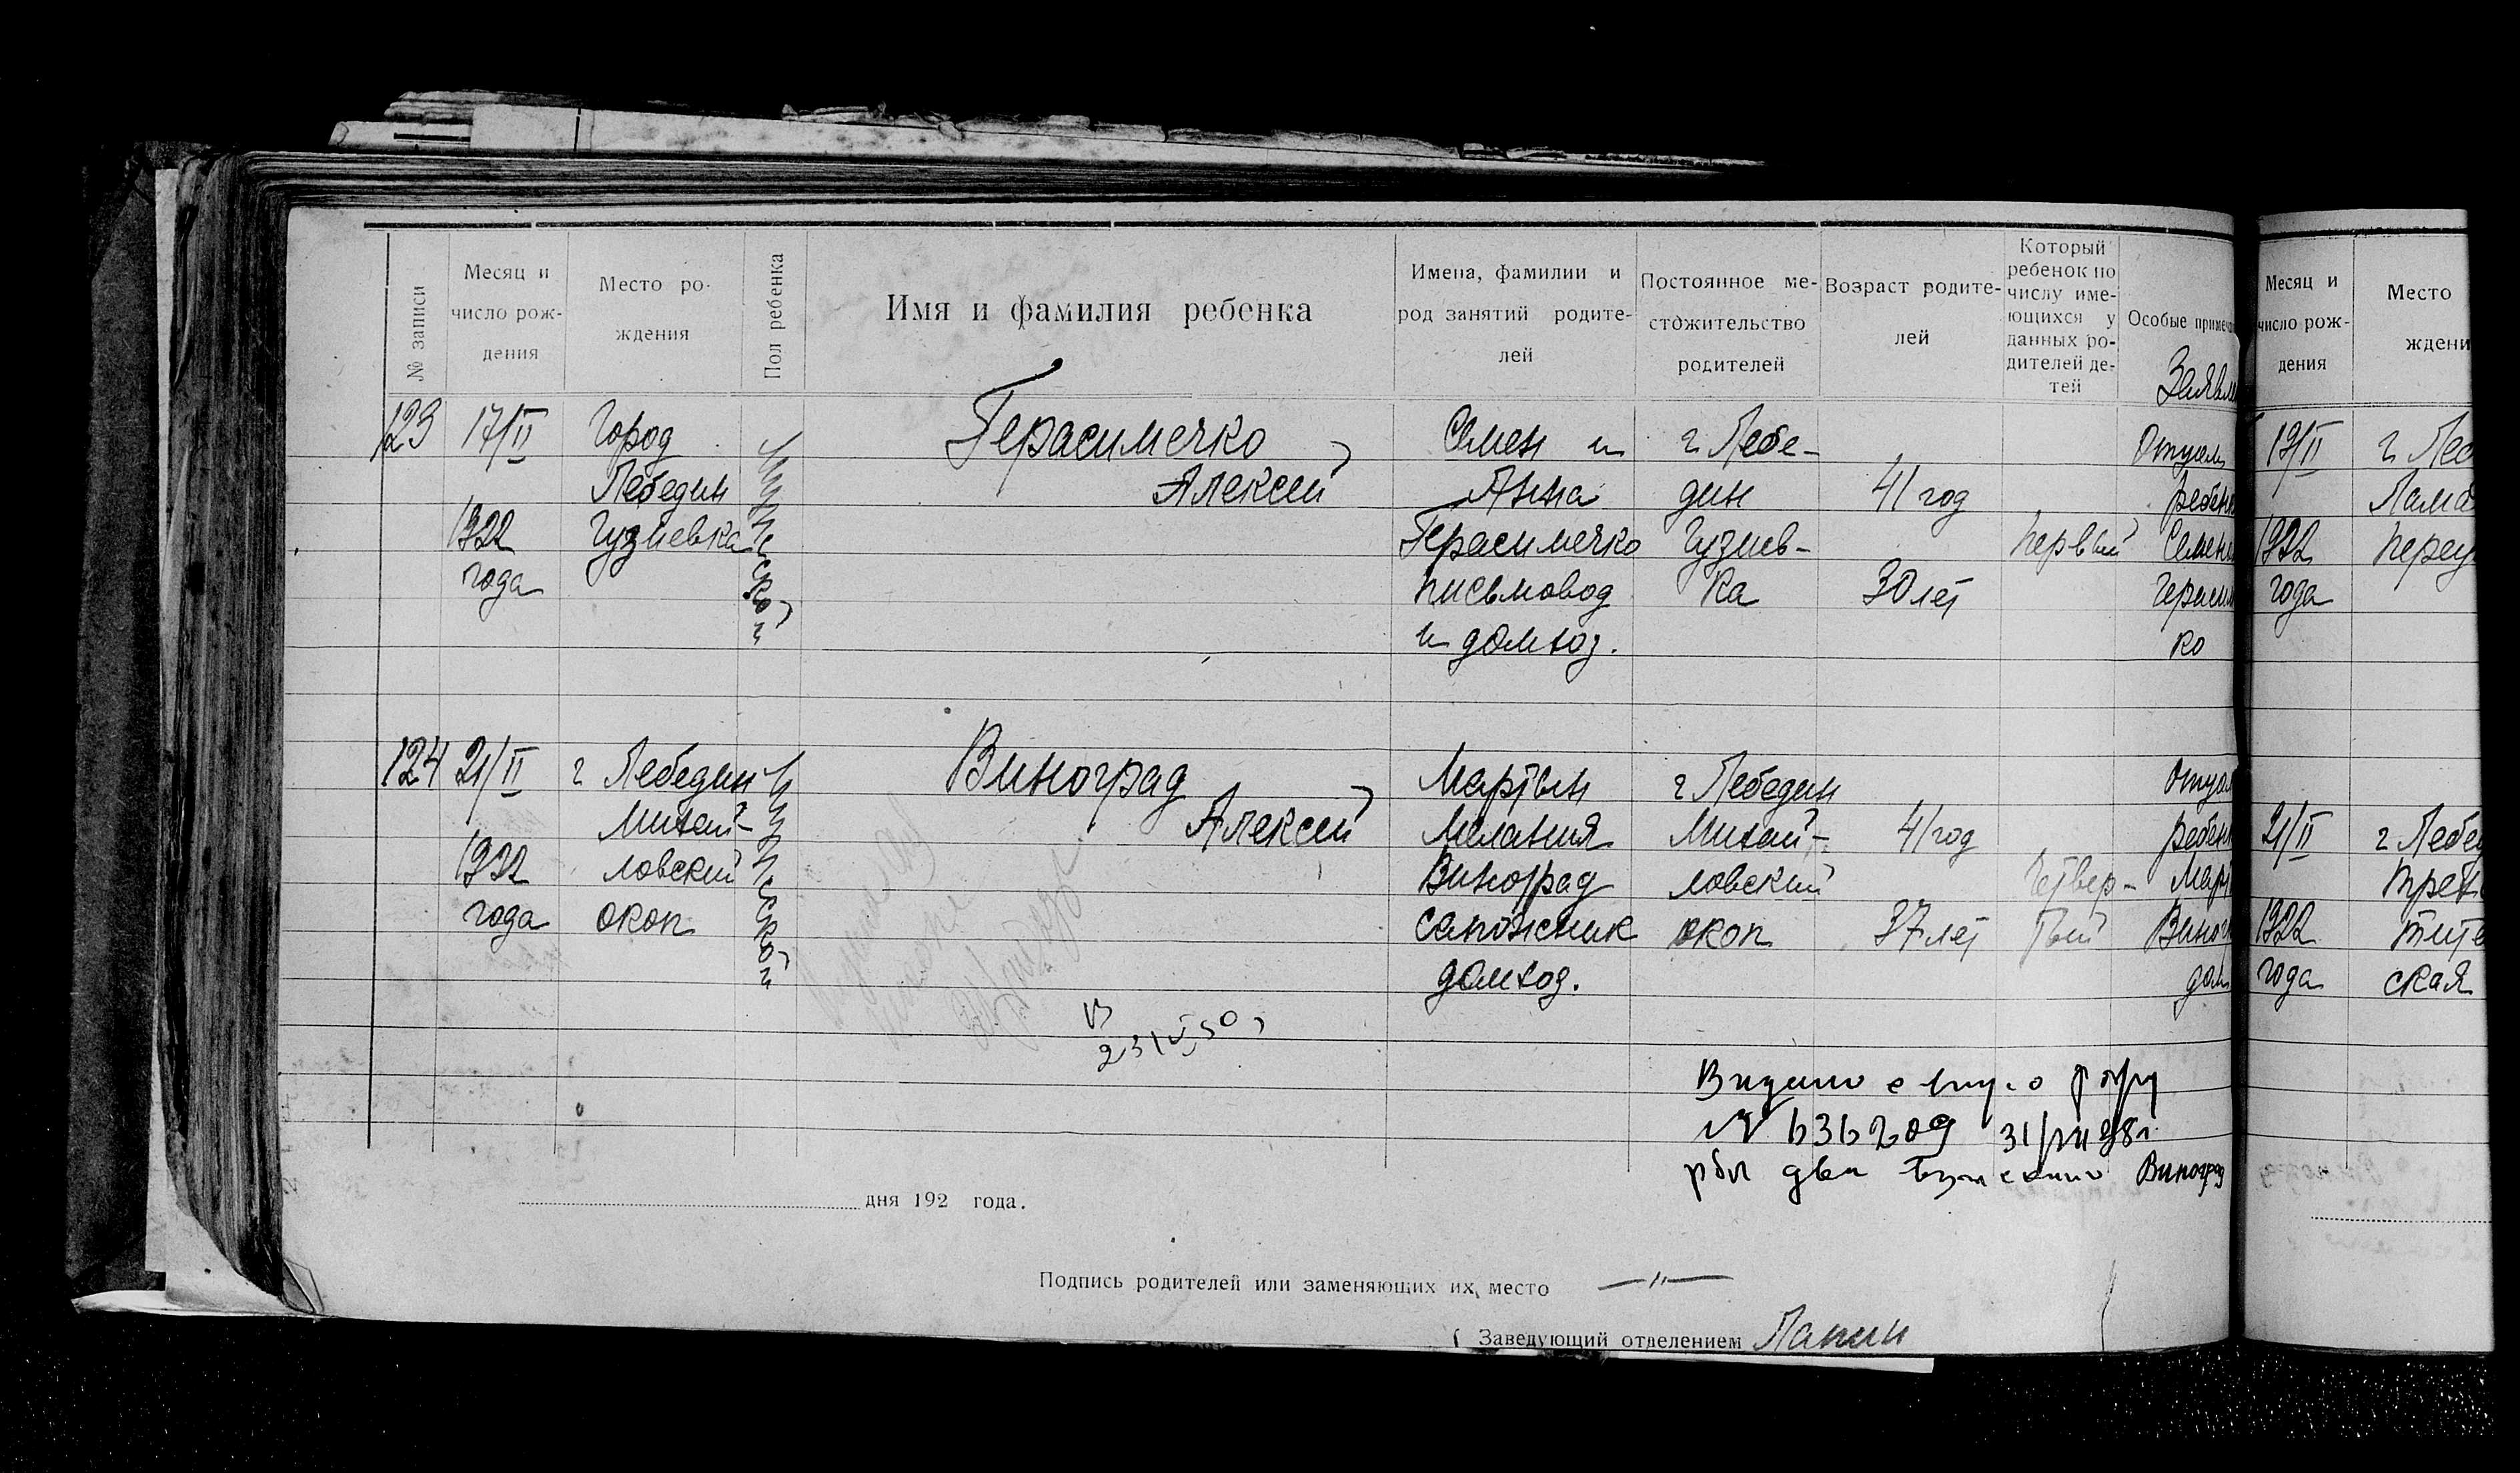 № записи
Месяц и число рождения
Место рождения
Пол ребенка
Имя и фамилия ребенка
Имена, фамилии и род занятий родителей
Постоянное местожительство родителей
Возраст родителей
Который ребенок по числу имеющихся у данных родителей детей
Особые примеча
Заявле
123
17/II
1922
года
Город
Лебедин
Гузиевка
Мужеской
Герасимечко
Алексей
Семен и
Анна
Герасимечко
письмовод
и домхоз.
г Лебе-
дин
Гузиев-
ка
41 год
30 лет
первый
Отцем
ребенк
Семен
Герасим
ко
124
21/II
1922
года
г Лебедин
Михай-
ловский
окоп
Мужеской
Виноград
Алексей
Мартын
Мелания
Виноград
сапожник
домхоз.
г Лебедин
Михай-
ловский
окоп
41 год
37 лет
Четвер-
тый
Отцем
ребенк
Март
Виног
дом
№ 636209
Виноград
дня 192 года.
Подпись родителей или заменяющих их место —"—
Заведующий отделением
Месяц и число рождения
Место
ждени
19/II
1922
года
г Леб
переу
21/II
1922
года
г Лебед
ская